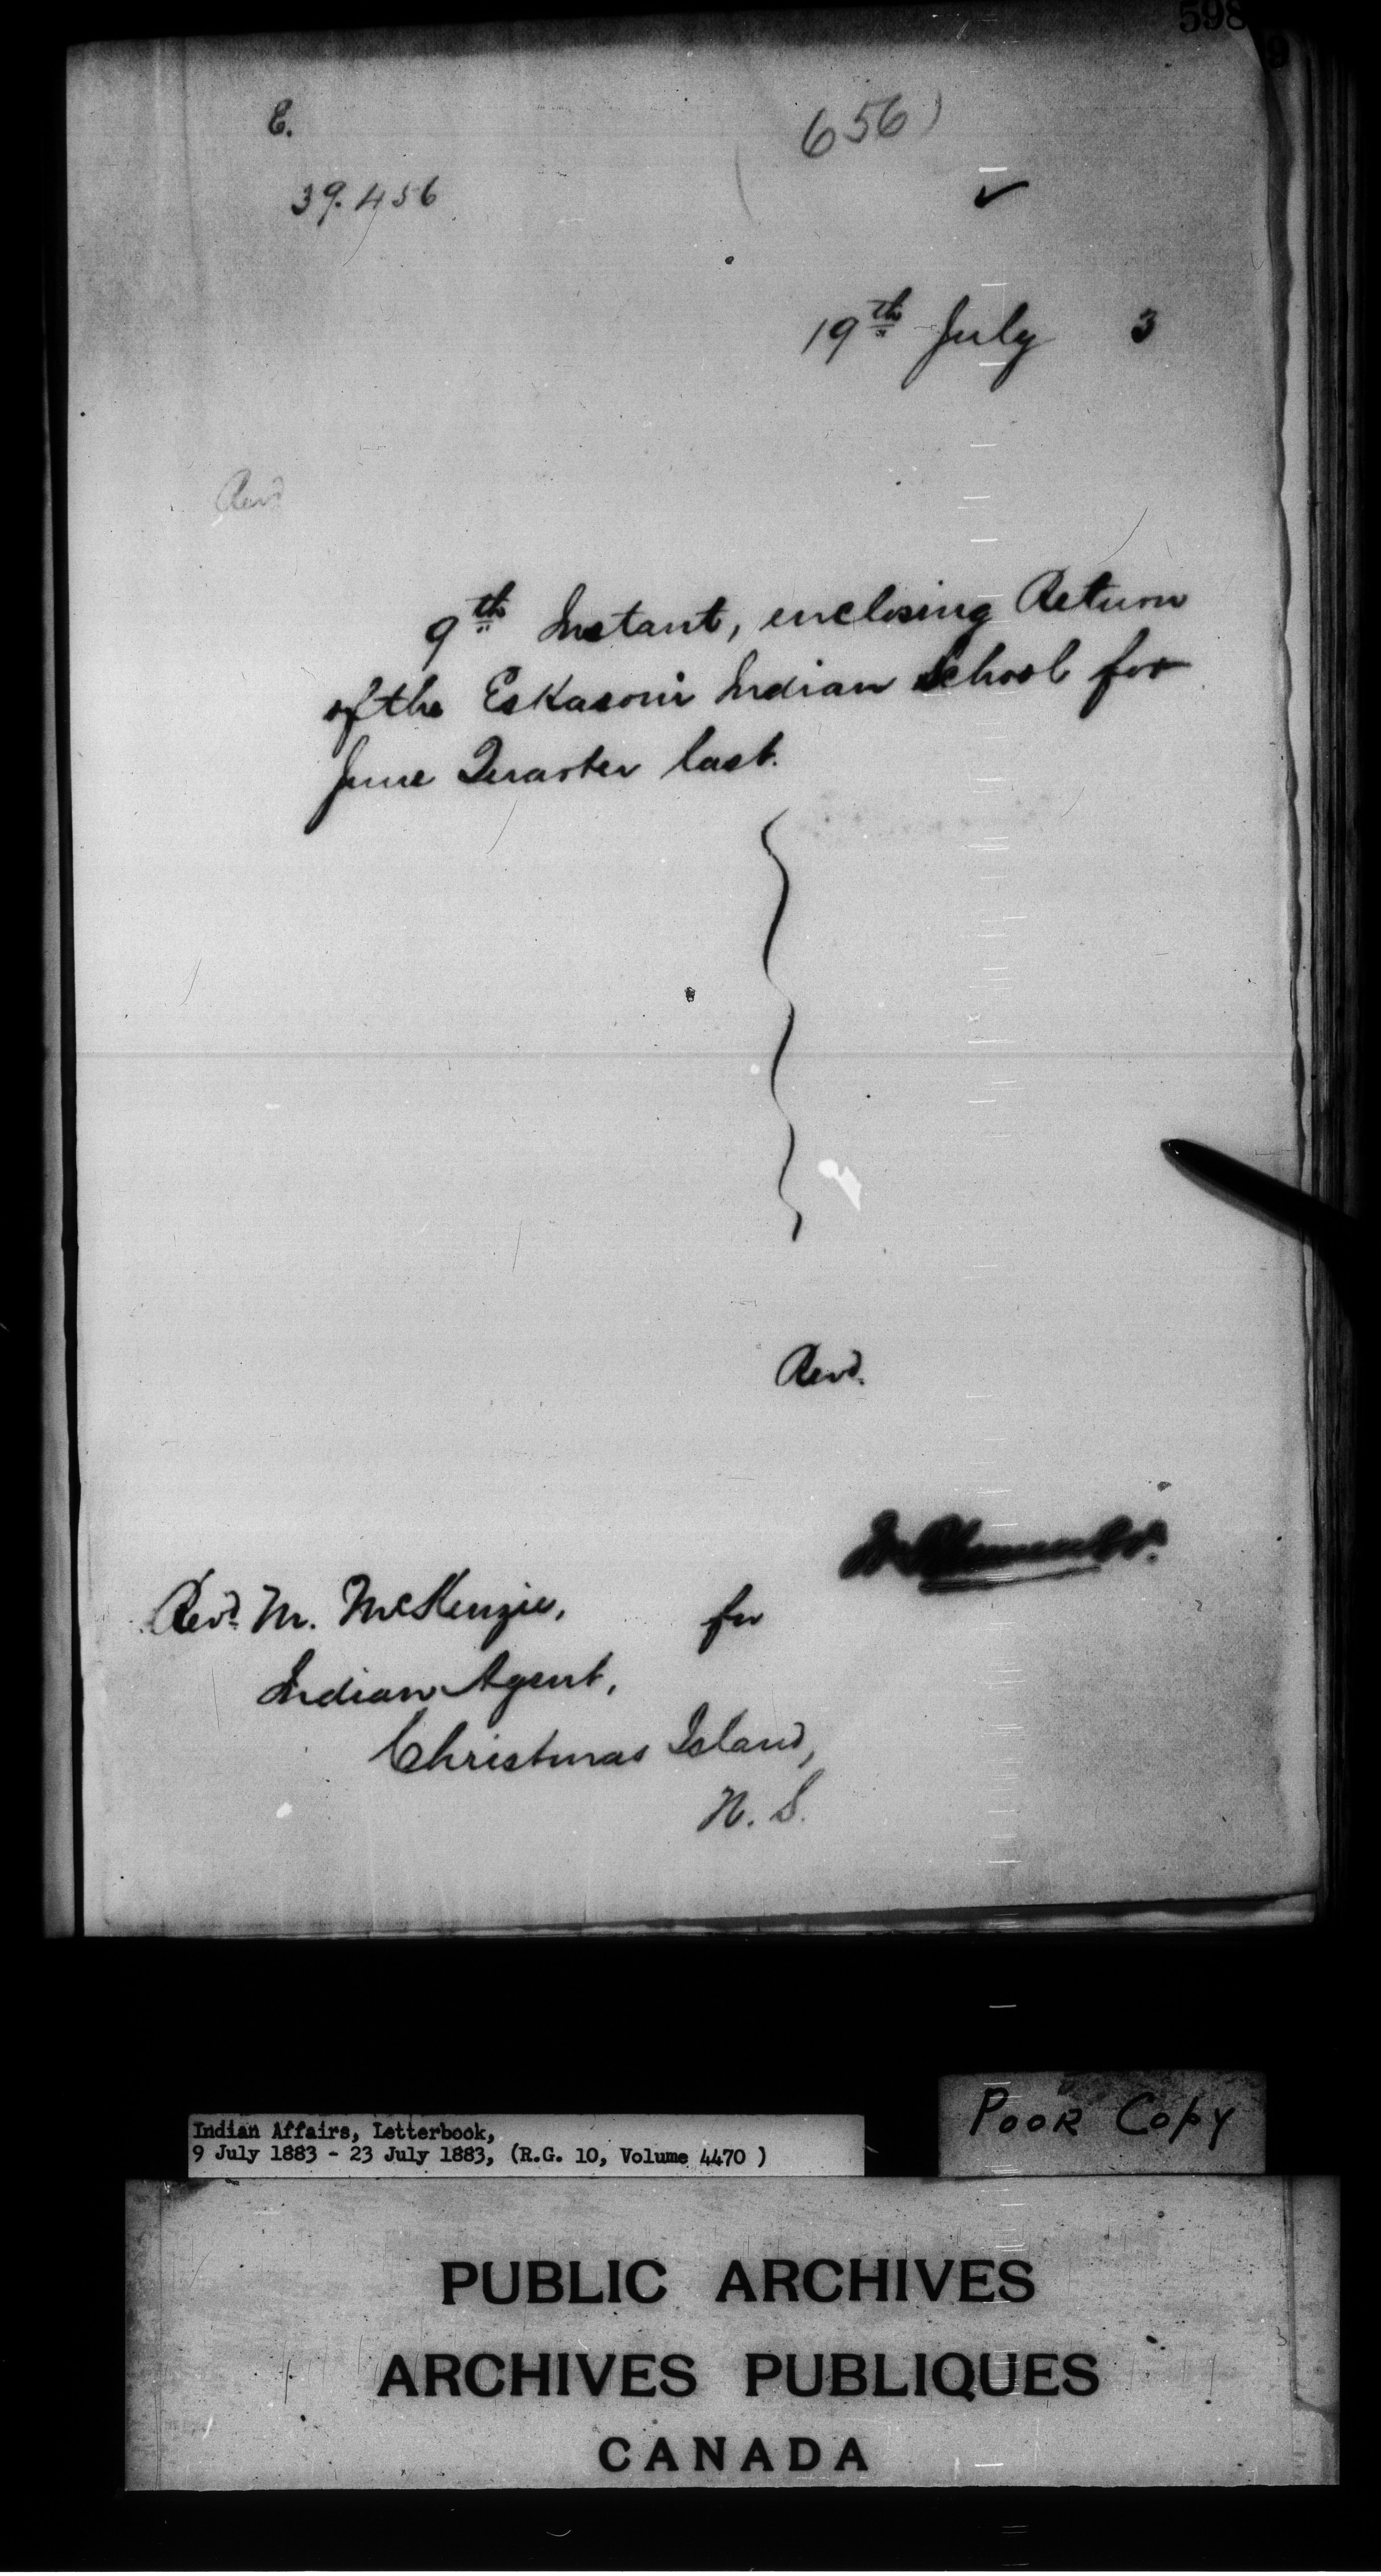 598
9
E.
656)
39.456
19th July 3
Revd
9th Instant, enclosing Return
of the Eskasoni Indian School for
June Quarter last.
Revd.
Revd. M. McKenzie,
for
Indian Agent,
Christmas Island,
N. S.
Poor Copy
Indian Affairs, Letterbook,
9 July 1883 - 23 July 1883, (R.G. 10, Volume 4470 )
PUBLIC ARCHIVES
ARCHIVES PUBLIQUES
CANADA